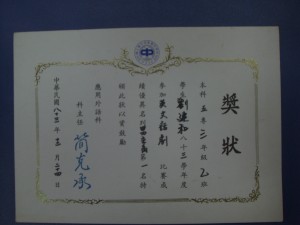 獎狀
本科五年三年級乙班
學生劉建和八十三學年度
參加英文話劇比賽成
績優異名列第一名特
頒此狀以資鼓勵
應用外語科
科主任 簡克丞
中華民國八十三年十二月二十四日